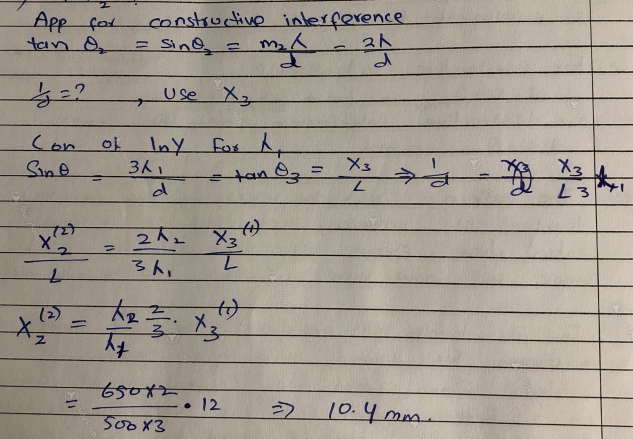 2
App for constructive interference
tan θ₂ = sinθ₂ = m₂λ/d = 2λ/d
1/d = ? , use X₃
Con of InY For λ₁
Sinθ = 3λ₁/d = tan θ₃ = X₃/L ⇒ 1/d = X₃/L3λ₁
X₂⁽²⁾/L = 2λ₂/3λ₁ X₃⁽¹⁾/L
X₂⁽²⁾ = λ₂/λ₁ 2/3 · X₃⁽¹⁾
= 650×2/500×3 • 12 ⇒ 10.4 mm.